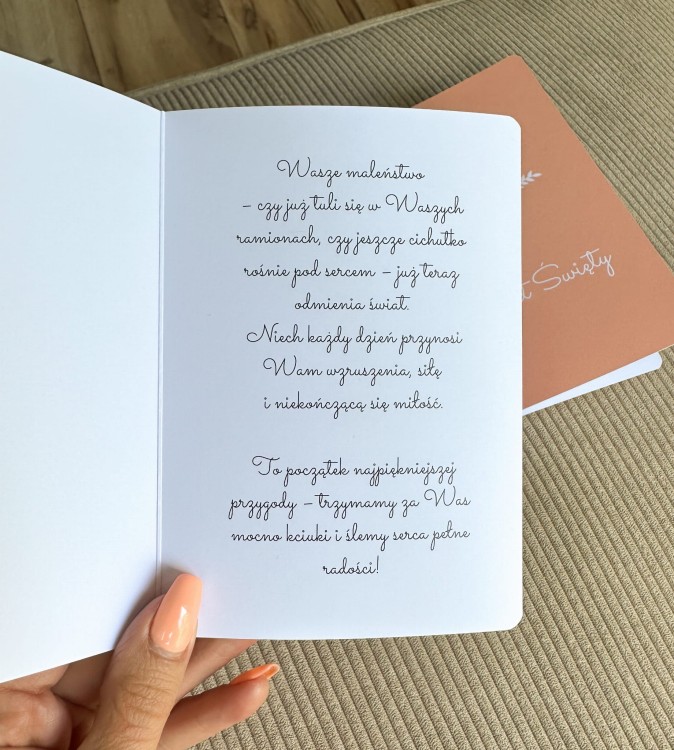 Wasze maleństwo
– czy już tuli się w Waszych
ramionach, czy jeszcze cichutko
rośnie pod sercem – już teraz
odmienia świat.
Niech każdy dzień przynosi
Wam wzruszenia, siłę
i niekończącą się miłość.
To początek najpiękniejszej
przygody – trzymamy za Was
mocno kciuki i ślemy serca pełne
radości!
Święty